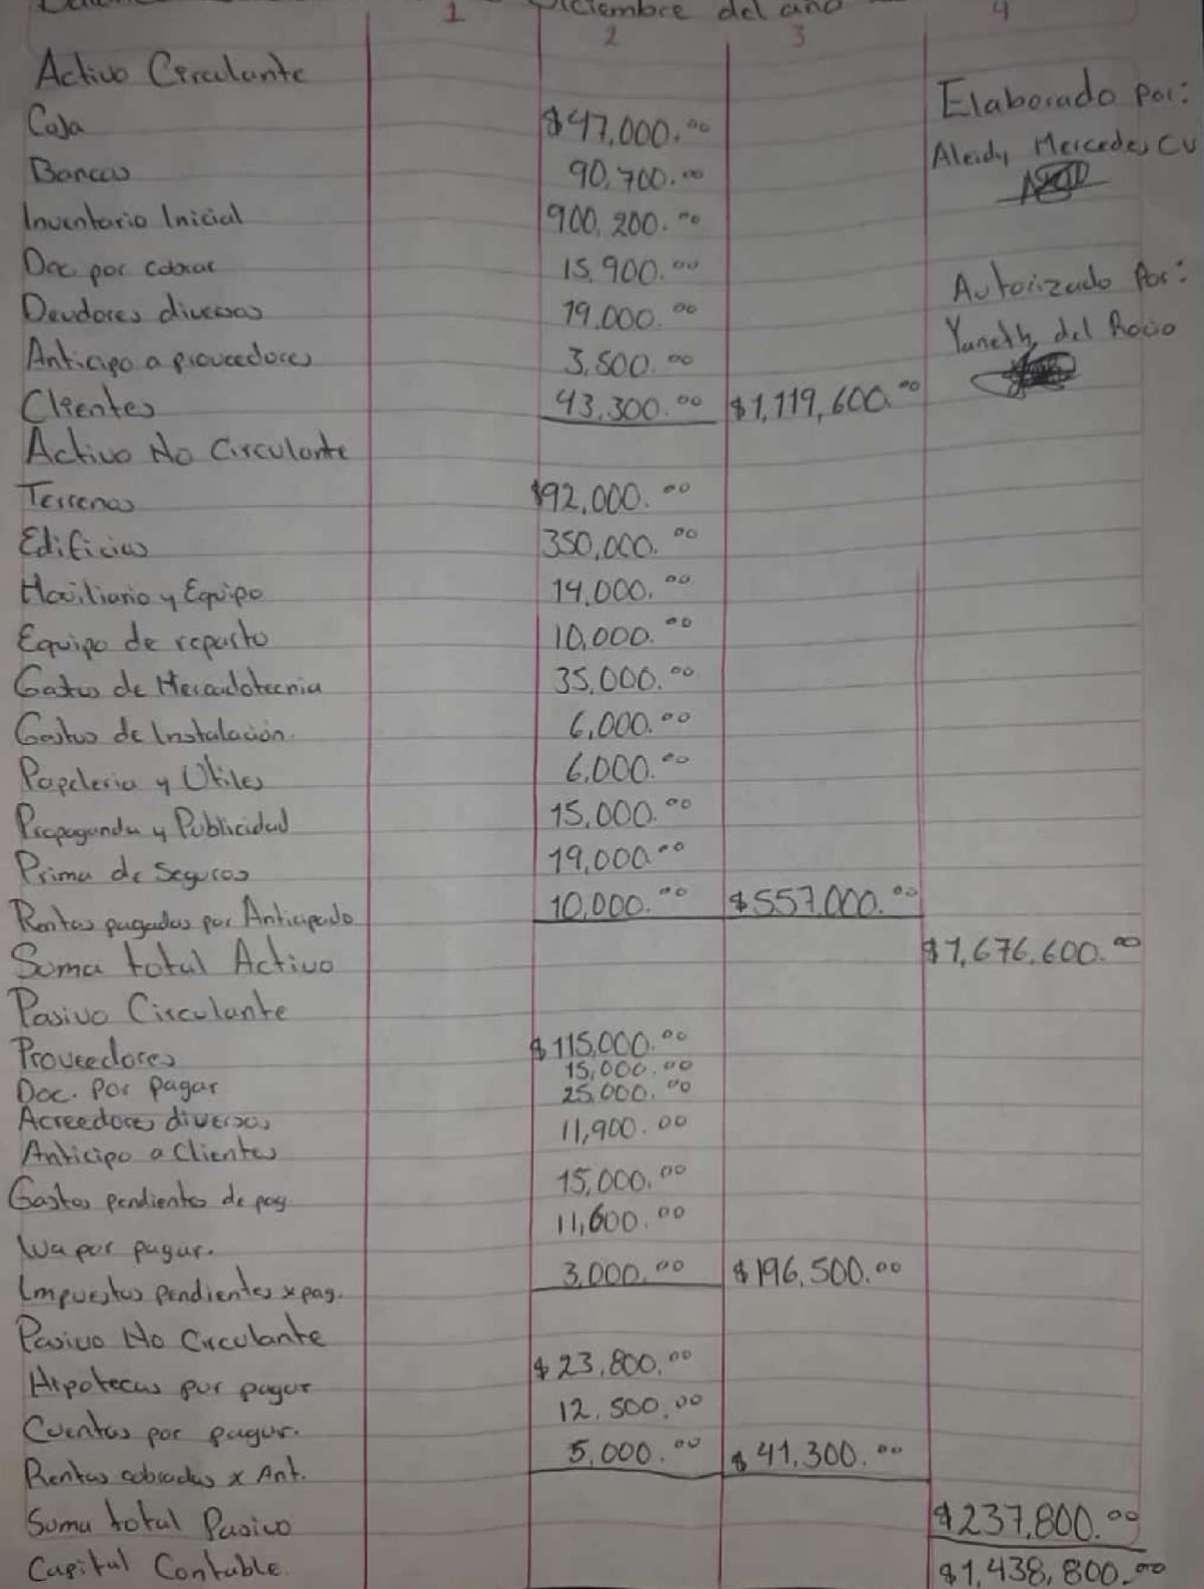 Diciembre del año
1 2 3 4
Activo Circulante
Caja $47,000.00
Bancos 90,700.00
Inventario Inicial 900,200.00
Doc por cobrar 15,900.00
Deudores diversos 19,000.00
Anticipo a proveedores 3,500.00
Clientes 43,300.00 $1,119,600.00
Activo No Circulante
Terrenos $92,000.00
Edificios 350,000.00
Moviliario y Equipo 14,000.00
Equipo de reparto 10,000.00
Gastos de Mercadotecnia 35,000.00
Gastos de Instalación. 6,000.00
Papeleria y Utiles 6,000.00
Propaganda y Publicidad 15,000.00
Prima de Seguros 19,000.00
Rentas pagadas por Anticipado 10,000.00 $557,000.00
Suma total Activo $1,676,600.00
Pasivo Circulante
Proveedores $115,000.00
Doc. Por pagar 15,000.00
Acreedores diversos 25,000.00
Anticipo a Clientes 11,900.00
Gastos pendientes de pag. 15,000.00
Iva por pagar. 11,600.00
Impuestos pendientes x pag. 3,000.00 $196,500.00
Pasivo No Circulante
Hipotecas por pagar $23,800.00
Cuentas por pagar. 12,500.00
Rentas cobradas x Ant. 5,000.00 $41,300.00
Suma total Pasivo $237,800.00
Capital Contable. $1,438,800.00
Elaborado por:
Aleidy Mercedes CU
Autorizado Por:
Yaneth del Rocio